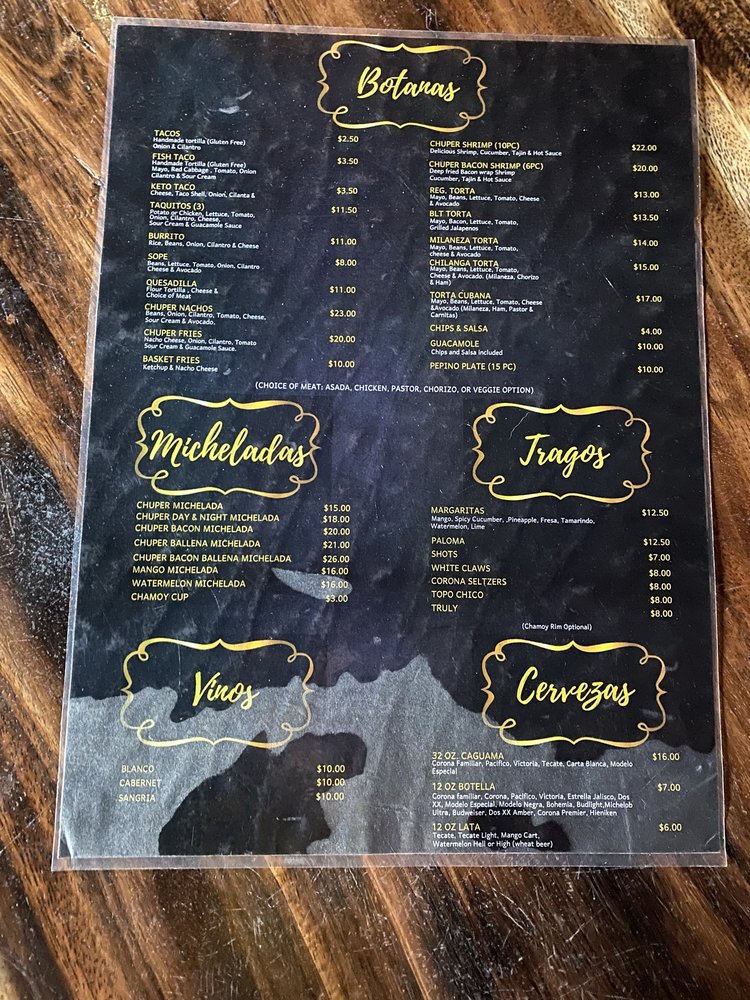 Botanas
TACOS $2.50
Handmade tortilla (Gluten Free)
Onion & Cilantro
FISH TACO $3.50
Handmade Tortilla (Gluten Free)
Mayo, Red Cabbage , Tomato, Onion
Cilantro & Sour Cream
KETO TACO $3.50
Cheese, Taco Shell, Onion, Cilanta &
TAQUITOS (3) $11.50
Potato or Chicken, Lettuce, Tomato,
Onion, Cilantro, Cheese,
Sour Cream & Guacamole Sauce
BURRITO $11.00
Rice, Beans, Onion, Cilantro & Cheese
SOPE $8.00
Beans, Lettuce, Tomato, Onion, Cilantro
Cheese & Avocado
QUESADILLA $11.00
Flour Tortilla , Cheese &
Choice of Meat
CHUPER NACHOS $23.00
Beans, Onion, Cilantro, Tomato, Cheese,
Sour Cream & Avocado.
CHUPER FRIES $20.00
Nacho Cheese, Onion, Cilantro, Tomato
Sour Cream & Guacamole Sauce.
BASKET FRIES $10.00
Ketchup & Nacho Cheese
CHUPER SHRIMP (10PC) $22.00
Delicious Shrimp, Cucumber, Tajin & Hot Sauce
CHUPER BACON SHRIMP (6PC) $20.00
Deep fried Bacon wrap Shrimp
Cucumber, Tajin & Hot Sauce
REG. TORTA $13.00
Mayo, Beans, Lettuce, Tomato, Cheese
& Avocado
BLT TORTA $13.50
Mayo, Bacon, Lettuce, Tomato,
Grilled Jalapenos
MILANEZA TORTA $14.00
Mayo, Beans, Lettuce, Tomato,
cheese & Avocado
CHILANGA TORTA $15.00
Mayo, Beans, Lettuce, Tomato,
Cheese & Avocado. (Milaneza, Chorizo
& Ham)
TORTA CUBANA $17.00
Mayo, Beans, Lettuce, Tomato, Cheese
&Avocado (Milaneza, Ham, Pastor &
Carnitas)
CHIPS & SALSA $4.00
GUACAMOLE $10.00
Chips and Salsa included
PEPINO PLATE (15 PC) $10.00
(CHOICE OF MEAT: ASADA, CHICKEN, PASTOR, CHORIZO, OR VEGGIE OPTION)
Micheladas
CHUPER MICHELADA $15.00
CHUPER DAY & NIGHT MICHELADA $18.00
CHUPER BACON MICHELADA $20.00
CHUPER BALLENA MICHELADA $21.00
CHUPER BACON BALLENA MICHELADA $26.00
MANGO MICHELADA $16.00
WATERMELON MICHELADA $16.00
CHAMOY CUP $3.00
Tragos
MARGARITAS $12.50
Mango, Spicy Cucumber, ,Pineapple, Fresa, Tamarindo,
Watermelon, Lime
PALOMA $12.50
SHOTS $7.00
WHITE CLAWS $8.00
CORONA SELTZERS $8.00
TOPO CHICO $8.00
TRULY $8.00
(Chamoy Rim Optional)
Vinos
BLANCO $10.00
CABERNET $10.00
SANGRIA $10.00
Cervezas
32 OZ. CAGUAMA $16.00
Corona Familiar, Pacifico, Victoria, Tecate, Carta Blanca, Modelo
Especial
12 OZ BOTELLA $7.00
Corona familiar, Corona, Pacifico, Victoria, Estrella Jalisco, Dos
XX, Modelo Especial, Modelo Negra, Bohemia, Budlight,Michelob
Ultra, Budweiser, Dos XX Amber, Corona Premier, Hieniken
12 OZ LATA $6.00
Tecate, Tecate Light, Mango Cart,
Watermelon Hell or High (wheat beer)